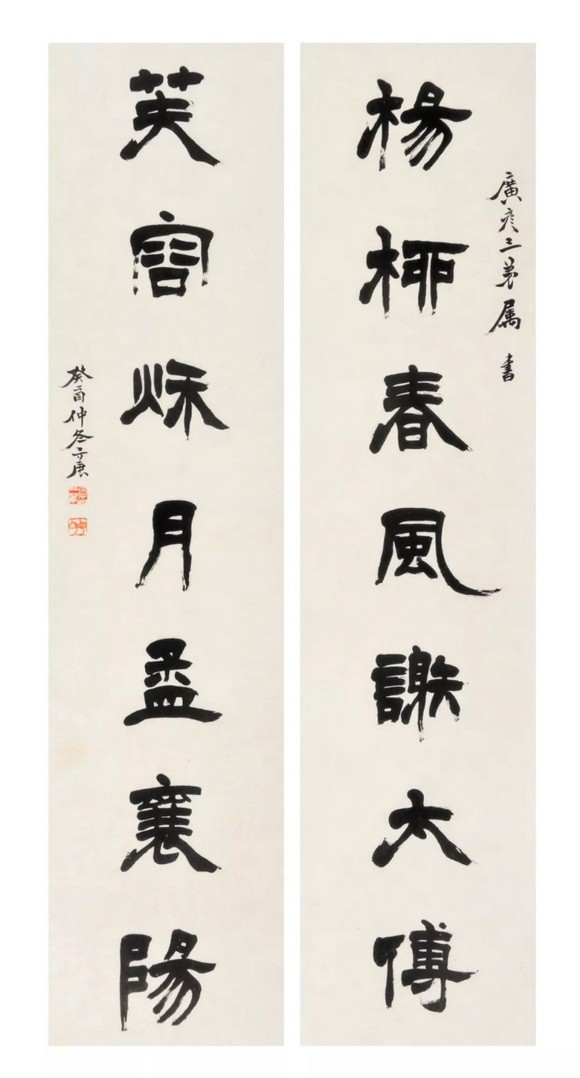 廣彥三弟屬書
楊柳春風謝太傅
芙容秌月孟襄陽
癸酉仲冬子康